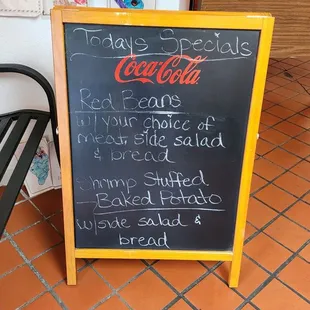 Todays Specials
Coca-Cola
Red Beans
w/your choice of
meat, side salad
& bread
Shrimp Stuffed
Baked Potato
w/side salad &
bread